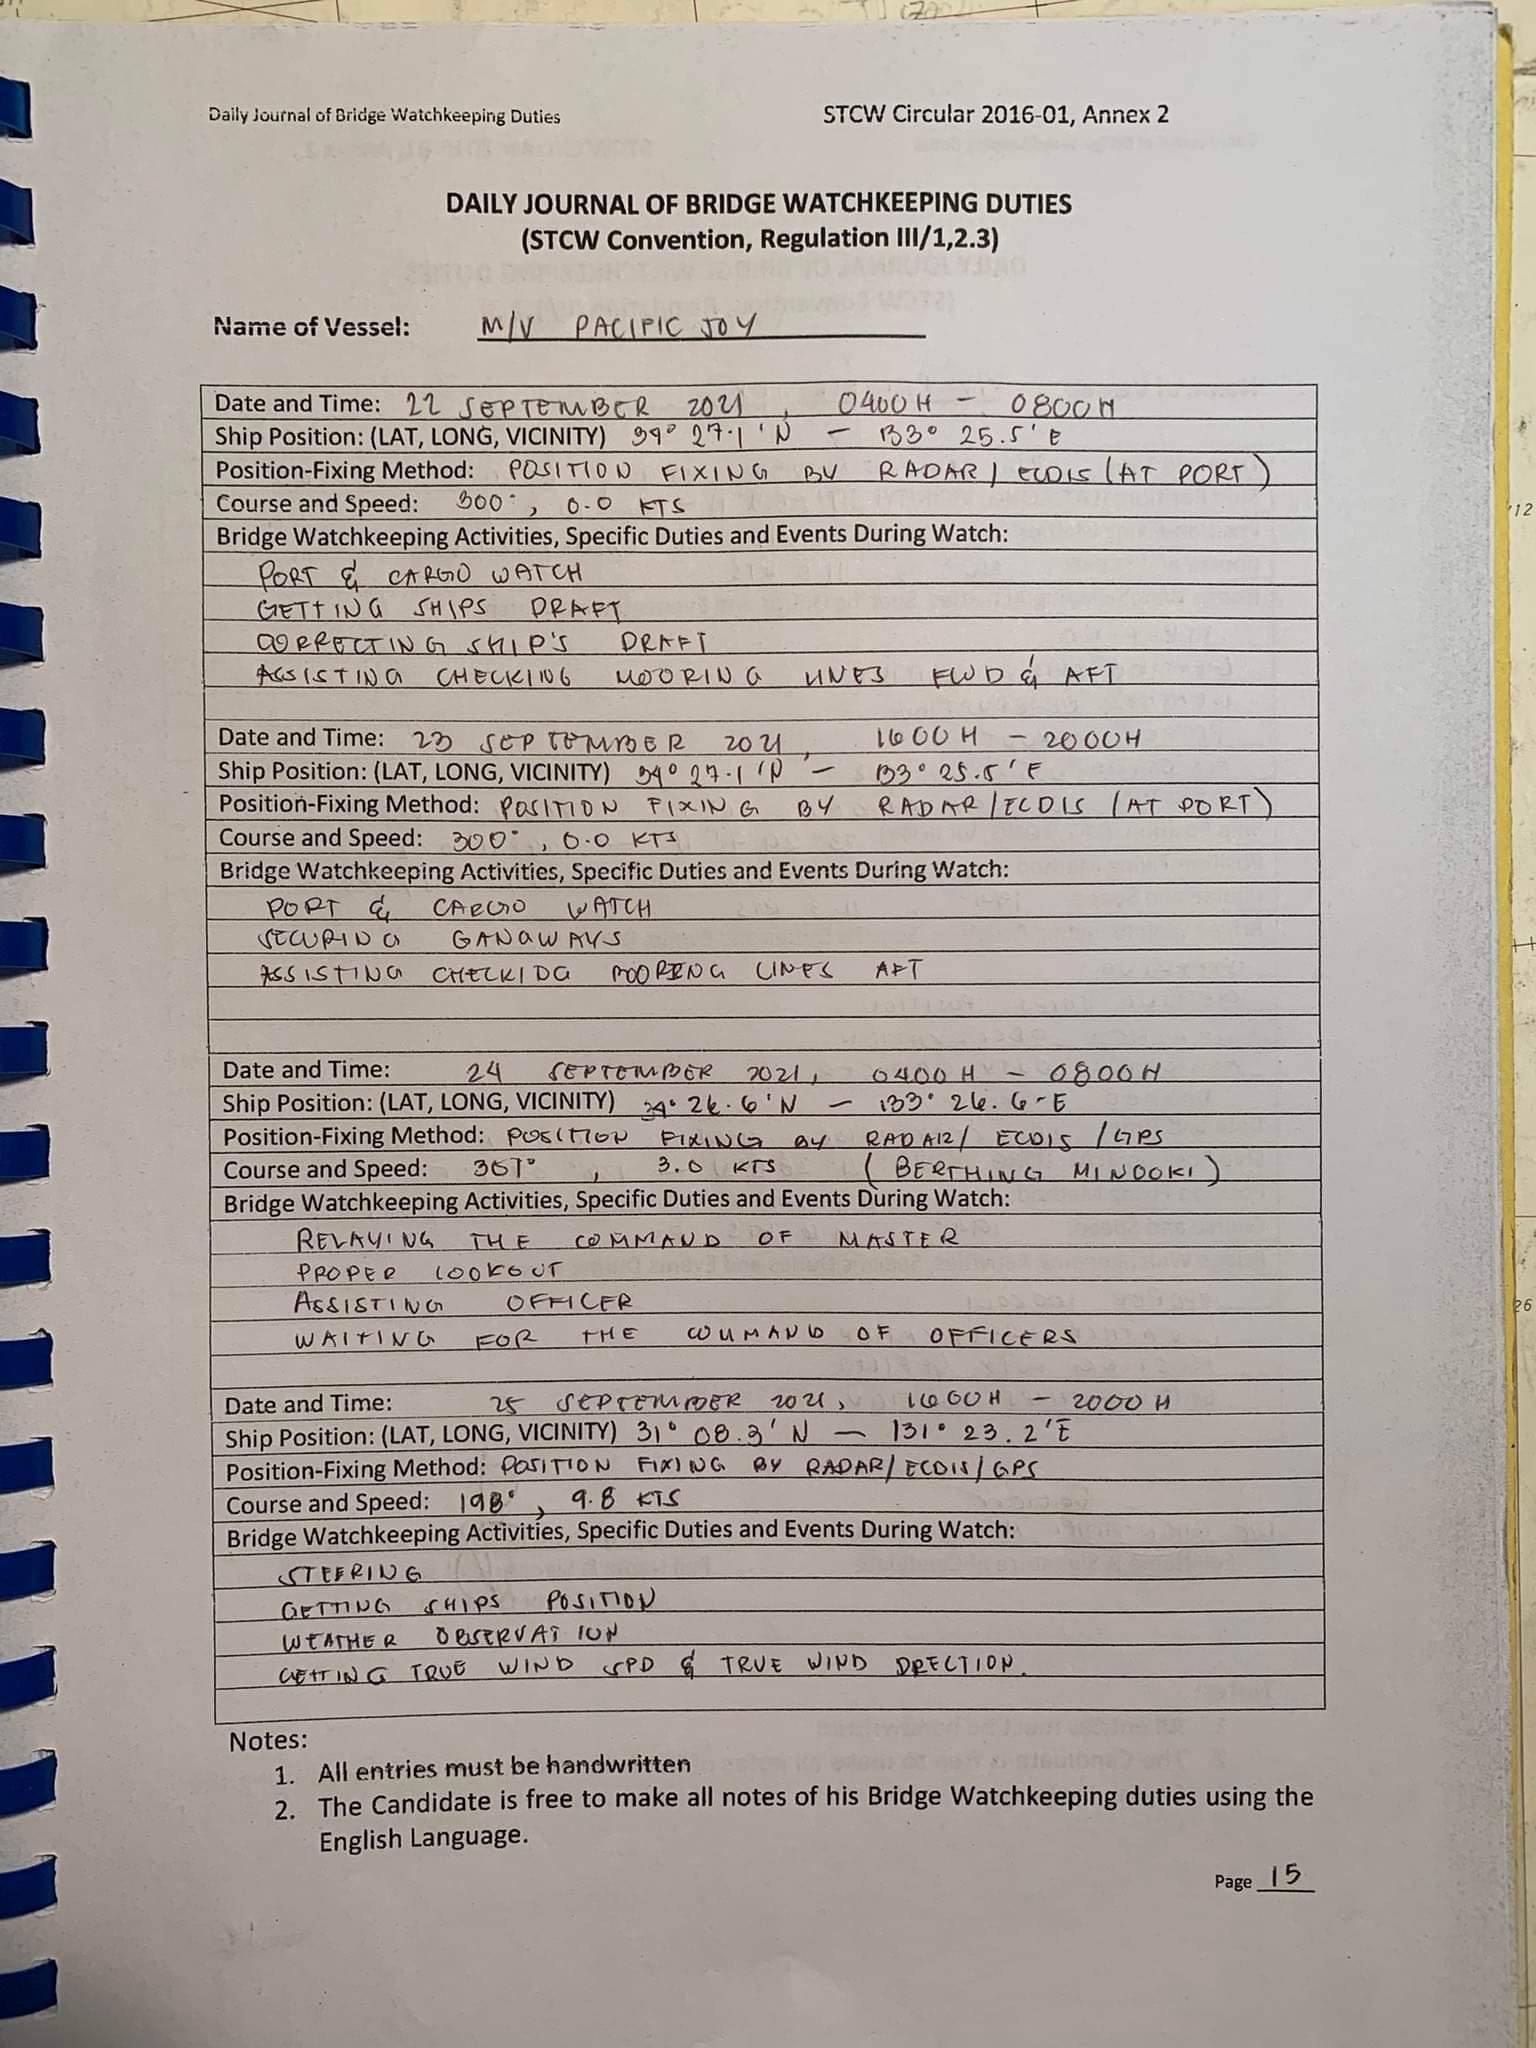 Daily Journal of Bridge Watchkeeping Duties STCW Circular 2016-01, Annex 2
DAILY JOURNAL OF BRIDGE WATCHKEEPING DUTIES
(STCW Convention, Regulation III/1,2.3)
Name of Vessel: M/V PACIFIC JOY
Date and Time: 22 SEPTEMBER 2021, 0400H - 0800H
Ship Position: (LAT, LONG, VICINITY) 34° 27.1'N - 133° 25.5'E
Position-Fixing Method: POSITION FIXING BY RADAR/ ECDIS (AT PORT)
Course and Speed: 300°, 0.0 KTS
Bridge Watchkeeping Activities, Specific Duties and Events During Watch:
PORT & CARGO WATCH
GETTING SHIPS DRAFT
CORRECTING SHIP'S DRAFT
ASSISTING CHECKING MOORING LINES FWD & AFT
Date and Time: 23 SEPTEMBER 2021, 1600H - 2000H
Ship Position: (LAT, LONG, VICINITY) 34° 27.1'N - 133° 25.5'E
Position-Fixing Method: POSITION FIXING BY RADAR/ECDIS (AT PORT)
Course and Speed: 300°, 0.0 KTS
Bridge Watchkeeping Activities, Specific Duties and Events During Watch:
PORT & CARGO WATCH
SECURING GANGWAYS
ASSISTING CHECKING MOORING LINES AFT
Date and Time: 24 SEPTEMBER 2021, 0400H - 0800H
Ship Position: (LAT, LONG, VICINITY) 34° 26.6'N - 133° 26.6'E
Position-Fixing Method: POSITION FIXING BY RADAR/ ECDIS /GPS
Course and Speed: 307°, 3.0 KTS (BERTHING MINOOKI)
Bridge Watchkeeping Activities, Specific Duties and Events During Watch:
RELAYING THE COMMAND OF MASTER
PROPER LOOKOUT
ASSISTING OFFICER
WAITING FOR THE COMMAND OF OFFICERS
Date and Time: 25 SEPTEMBER 2021, 1600H - 2000H
Ship Position: (LAT, LONG, VICINITY) 31° 08.3'N - 131° 23.2'E
Position-Fixing Method: POSITION FIXING BY RADAR/ECDIS/GPS
Course and Speed: 198°, 9.8 KTS
Bridge Watchkeeping Activities, Specific Duties and Events During Watch:
STEERING
GETTING SHIPS POSITION
WEATHER OBSERVATION
GETTING TRUE WIND SPD & TRUE WIND DRECTION.
Notes:
1. All entries must be handwritten
2. The Candidate is free to make all notes of his Bridge Watchkeeping duties using the
English Language.
Page 15